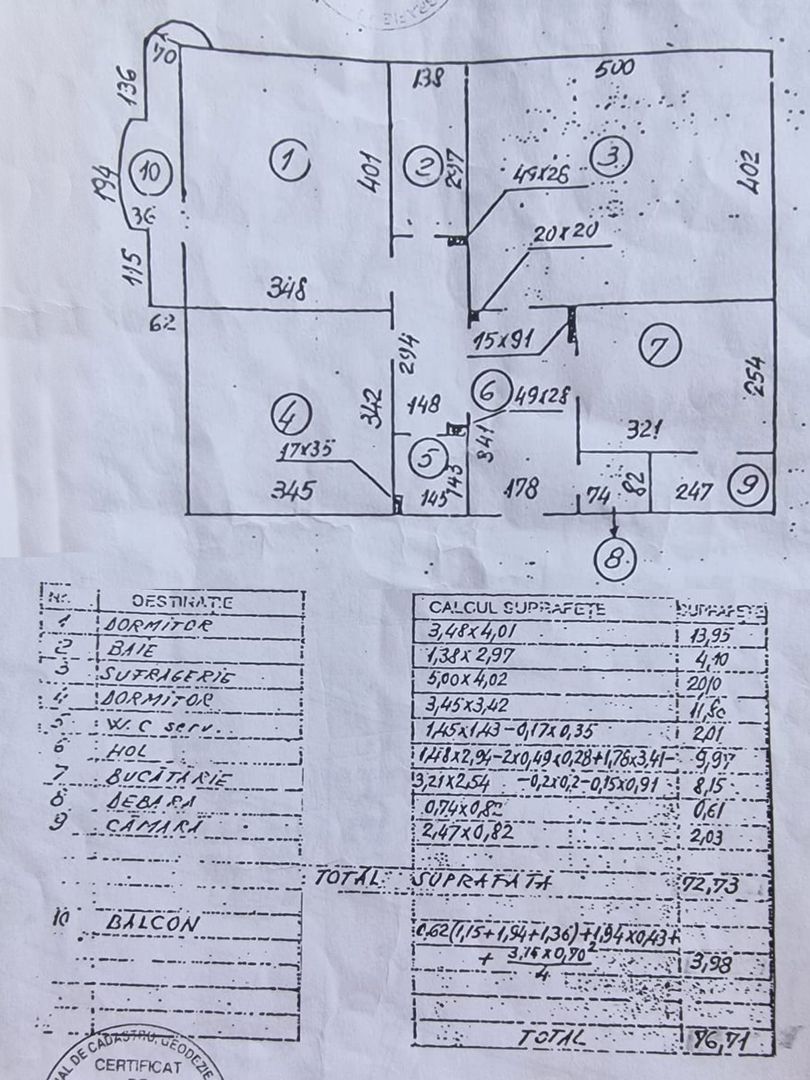 70
136
194
36
115
62
10
1
401
348
138
2
297
500
3
402
49x26
20x20
15x91
7
254
321
294
342
4
17x35
345
148
6
49x28
5
341
143
145
178
74
82
247
9
8
Nr. DESTINAȚIE CALCUL SUPRAFEȚE SUPRAFEȚE
1 DORMITOR 3,48x4,01 13,95
2 BAIE 1,38x2,97 4,10
3 SUFRAGERIE 5,00x4,02 20,10
4 DORMITOR 3,45x3,42 11,80
5 W.C serv. 1,45x1,43-0,17x0,35 2,01
6 HOL 1,48x2,94-2x0,49x0,28+1,78x3,41- 9,97
7 BUCĂTĂRIE 3,21x2,54 -0,2x0,2-0,15x0,91 8,15
8 DEBARA 0,74x0,82 0,61
9 CĂMARĂ 2,47x0,82 2,03
TOTAL SUPRAFATA 72,73
10 BALCON 0,62(1,15+1,94+1,36)+1,94x0,43+
+ 3,14x0,70²
4
3,98
TOTAL 76,71
DE CADASTRU, GEODEZIE
CERTIFICAT